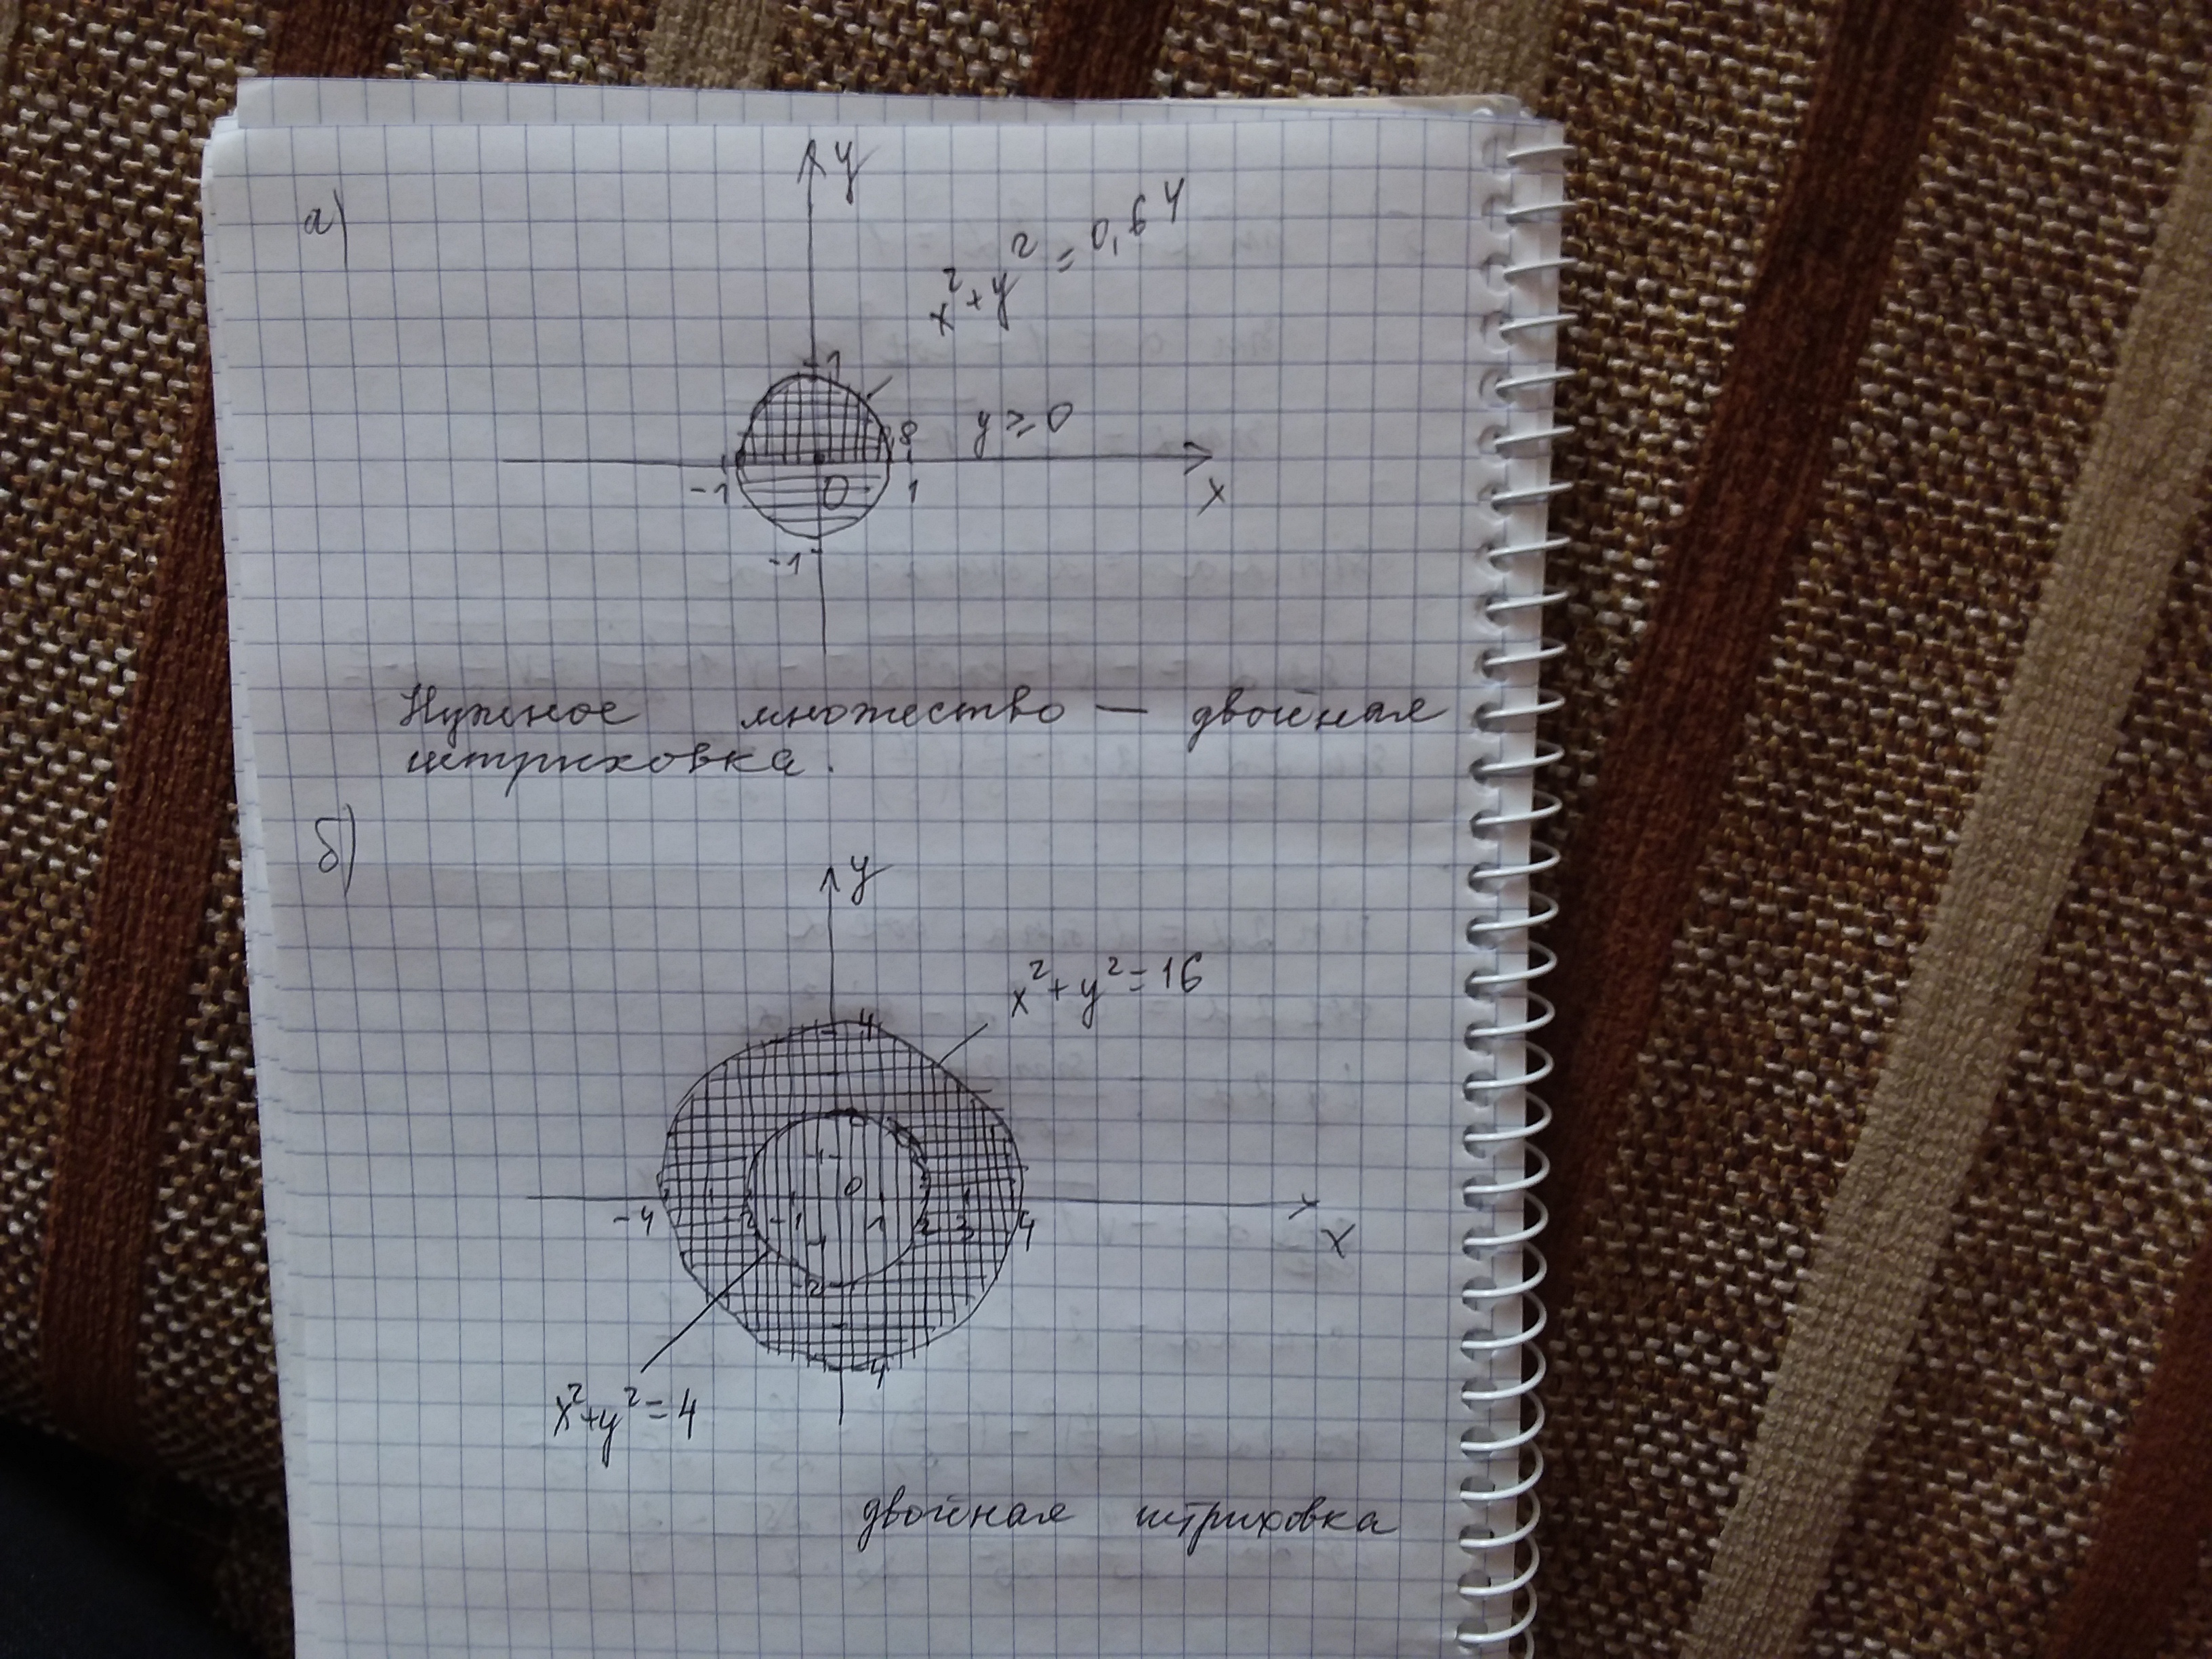 а)
y
x² + y² = 0,64
1
y ≥ 0
0,8
-1
0
1
x
-1
Нужное множество — двойная
штриховка.
б)
y
x² + y² = 16
4
0
-4
-2
-1
1
2
3
4
x
-2
-4
x² + y² = 4
двойная штриховка